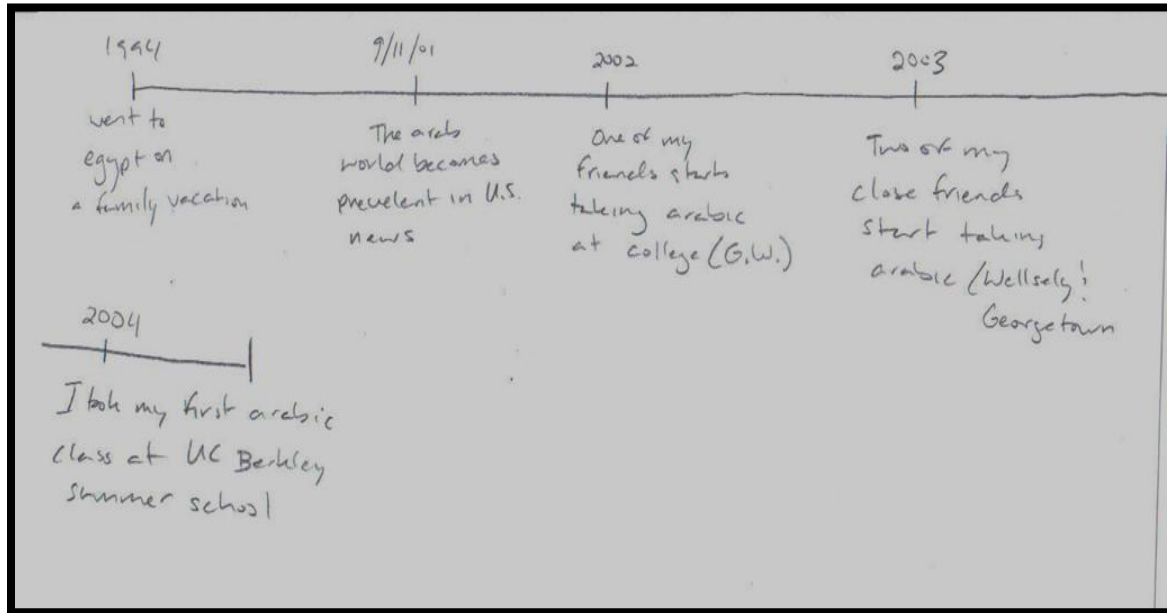 1994
went to
egypt on
a family vacation
9/11/01
The arab
world becomes
prevelent in U.S.
news
2002
One of my
friends starts
taking arabic
at college (G.W.)
2003
Two of my
close friends
start taking
arabic (Wellsely &
Georgetown
2004
I took my first arabic
class at UC Berkley
summer school